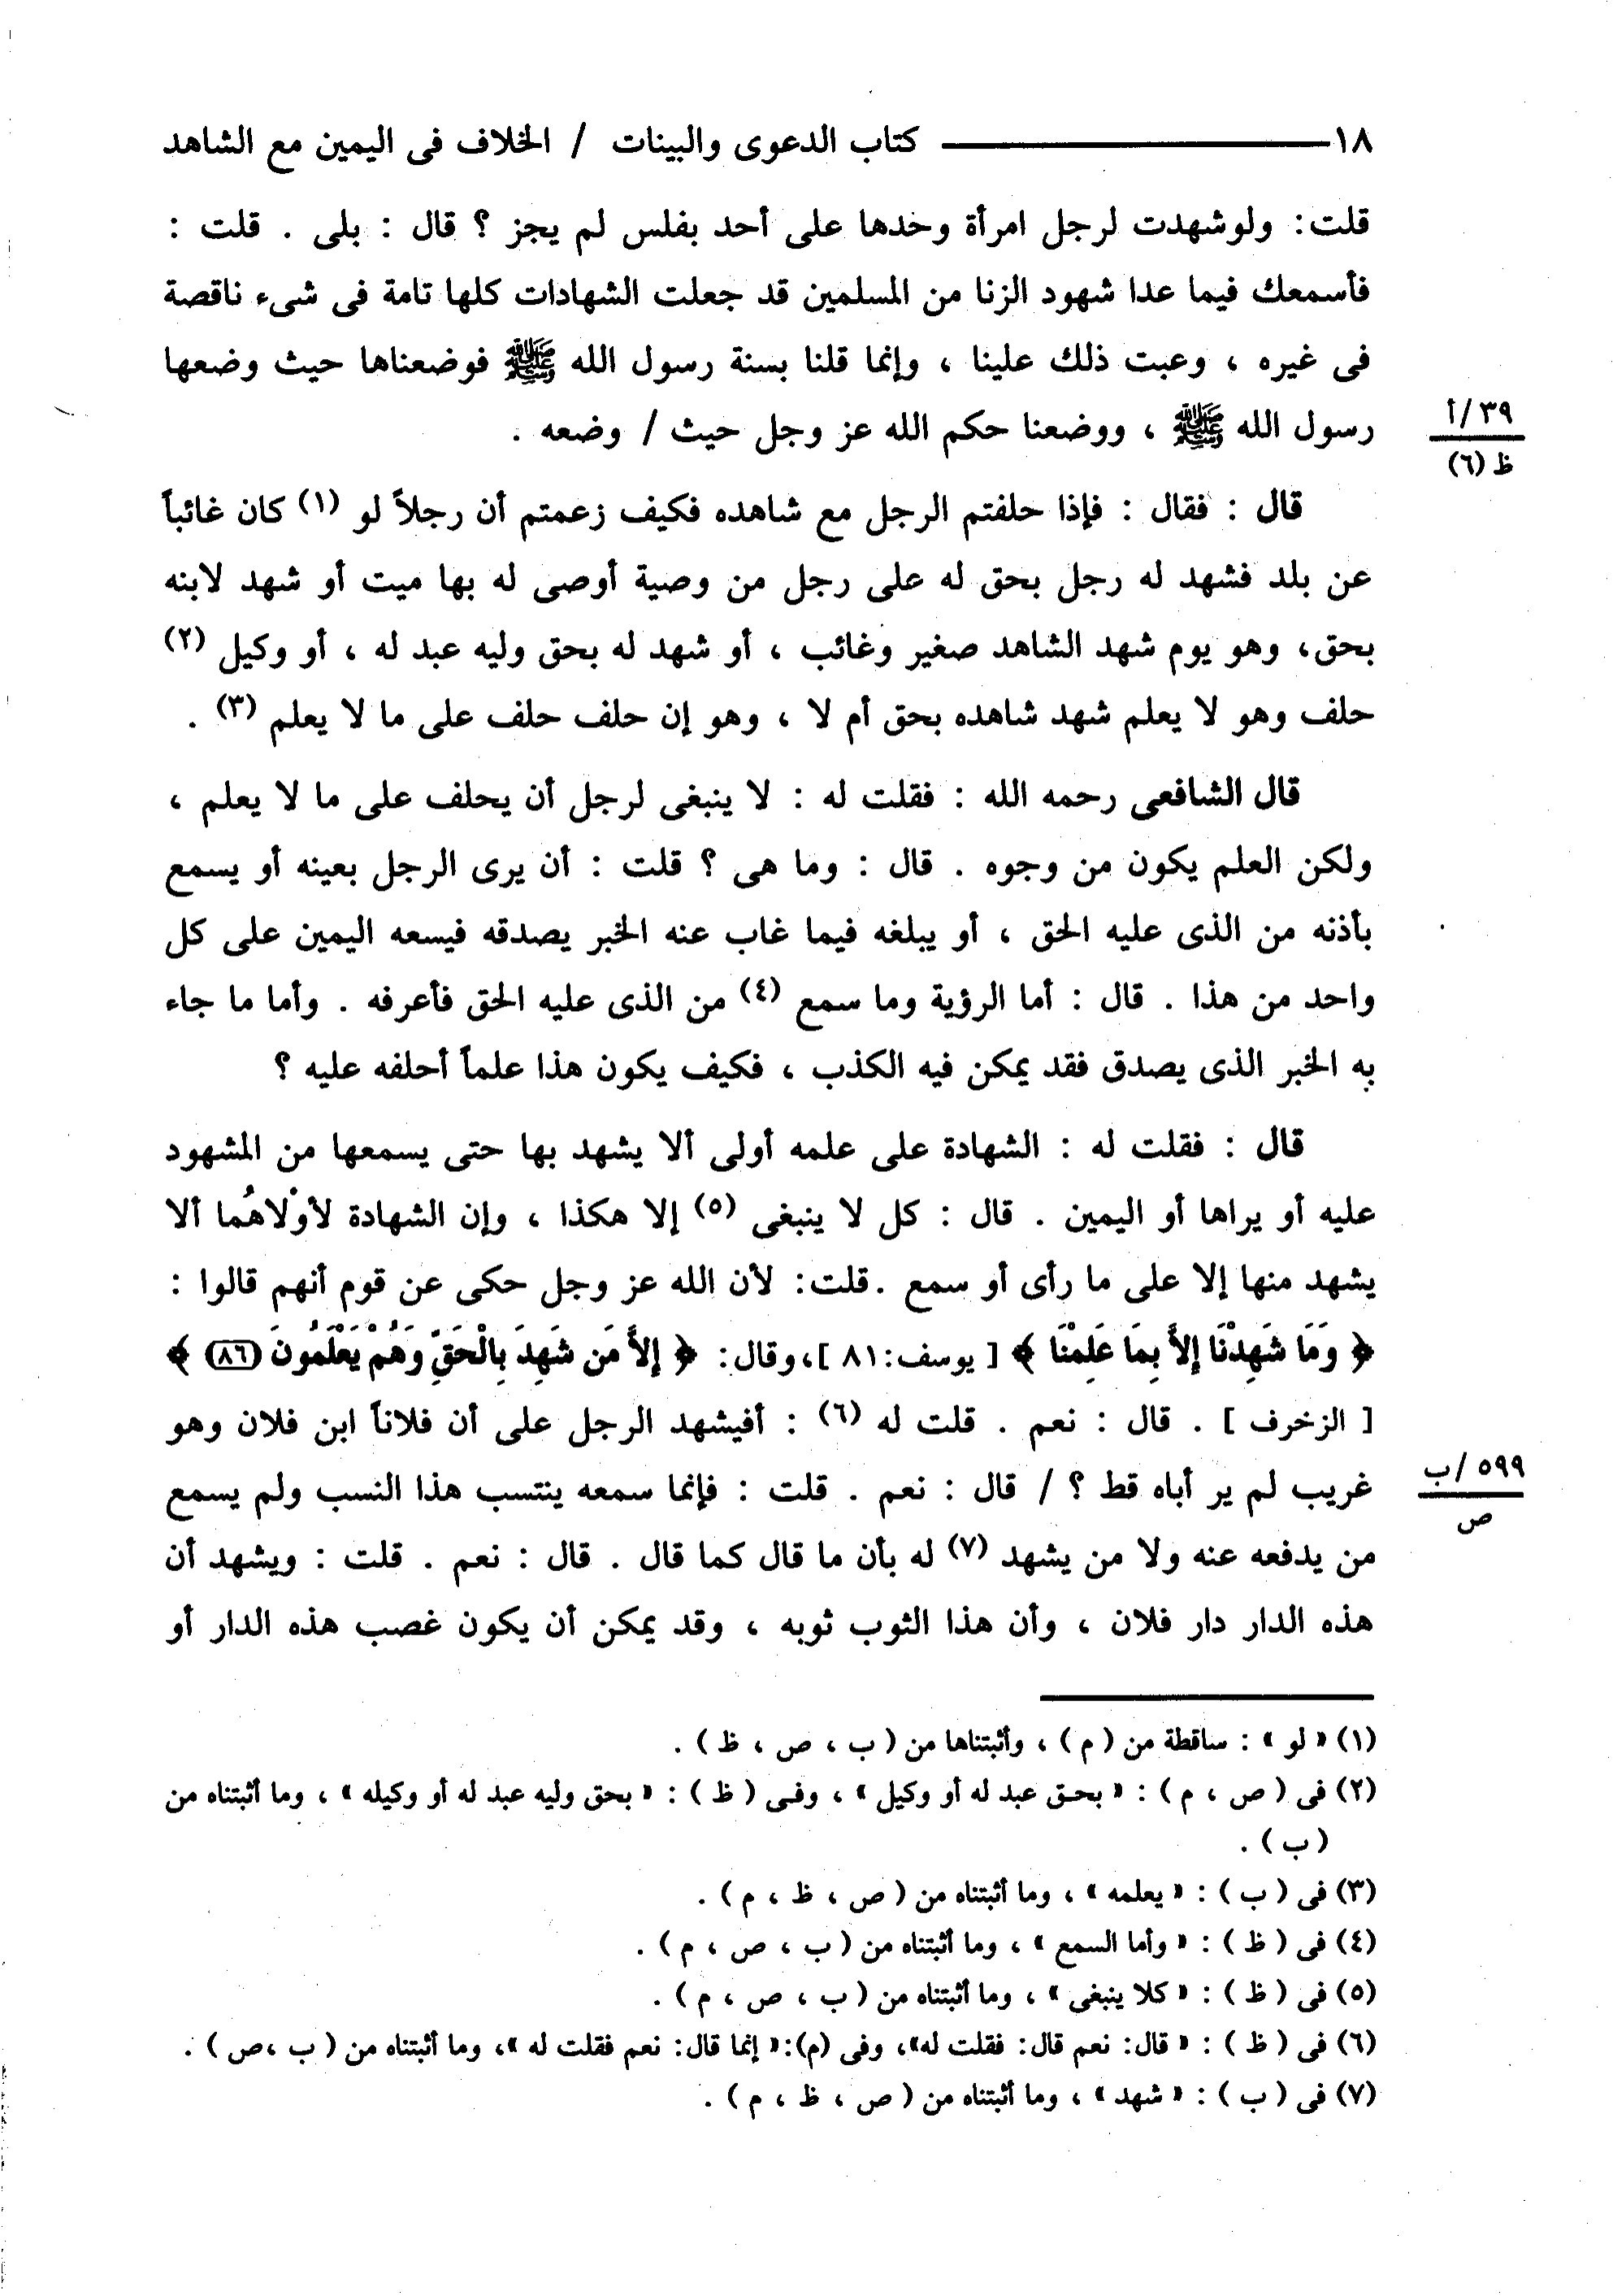 ١٨ كتاب الدعوى والبينات / الخلاف فى اليمين مع الشاهد
قلت: ولوشهدت لرجل امرأة وحدها على أحد بفلس لم يجز ؟ قال : بلى . قلت :
فأسمعك فيما عدا شهود الزنا من المسلمين قد جعلت الشهادات كلها تامة فى شىء ناقصة
فى غيره ، وعبت ذلك علينا ، وإنما قلنا بسنة رسول الله ﷺ فوضعناها حيث وضعها
رسول الله ﷺ ، ووضعنا حكم الله عز وجل حيث / وضعه .
٣٩/أ
ظ (٦)
قال : فقال : فإذا حلفتم الرجل مع شاهده فكيف زعمتم أن رجلاً لو (١) كان غائباً
عن بلد فشهد له رجل بحق له على رجل من وصية أوصى له بها ميت أو شهد لابنه
بحق، وهو يوم شهد الشاهد صغير وغائب ، أو شهد له بحق وليه عبد له ، أو وكيل (٢)
حلف وهو لا يعلم شهد شاهده بحق أم لا ، وهو إن حلف حلف على ما لا يعلم (٣) .
قال الشافعى رحمه الله : فقلت له : لا ينبغى لرجل أن يحلف على ما لا يعلم ،
ولكن العلم يكون من وجوه . قال : وما هى ؟ قلت : أن يرى الرجل بعينه أو يسمع
بأذنه من الذى عليه الحق ، أو يبلغه فيما غاب عنه الخبر يصدقه فيسعه اليمين على كل
واحد من هذا . قال : أما الرؤية وما سمع (٤) من الذى عليه الحق فأعرفه . وأما ما جاء
به الخبر الذى يصدق فقد يمكن فيه الكذب ، فكيف يكون هذا علماً أحلفه عليه ؟
قال : فقلت له : الشهادة على علمه أولى ألا يشهد بها حتى يسمعها من المشهود
عليه أو يراها أو اليمين . قال : كل لا ينبغى (٥) إلا هكذا ، وإن الشهادة لأوْلاهُما ألا
يشهد منها إلا على ما رأى أو سمع .قلت: لأن الله عز وجل حكى عن قوم أنهم قالوا :
﴿ وَمَا شَهِدْنَا إِلاَّ بِمَا عَلِمْنَا ﴾ [ يوسف: ٨١ ]،وقال: ﴿ إِلاَّ مَن شَهِدَ بِالْحَقِّ وَهُمْ يَعْلَمُونَ (٨٦) ﴾
[ الزخرف ] . قال : نعم . قلت له (٦) : أفيشهد الرجل على أن فلاناً ابن فلان وهو
غريب لم ير أباه قط ؟ / قال : نعم . قلت : فإنما سمعه ينتسب هذا النسب ولم يسمع
٥٩٩/ب
ص
من يدفعه عنه ولا من يشهد (٧) له بأن ما قال كما قال . قال : نعم . قلت : ويشهد أن
هذه الدار دار فلان ، وأن هذا الثوب ثوبه ، وقد يمكن أن يكون غصب هذه الدار أو
(١) « لو » : ساقطة من ( م ) ، وأثبتناها من ( ب ، ص ، ظ ) .
(٢) فى ( ص ، م ) : « بحق عبد له أو وكيل » ، وفى ( ظ ) : « بحق وليه عبد له أو وكيله » ، وما أثبتناه من
( ب ) .
(٣) فى ( ب ) : « يعلمه » ، وما أثبتناه من ( ص ، ظ ، م ) .
(٤) فى ( ظ ) : « وأما السمع » ، وما أثبتناه من ( ب ، ص ، م ) .
(٥) فى ( ظ ) : « كلا ينبغى » ، وما أثبتناه من ( ب ، ص ، م ) .
(٦) فى ( ظ ) : « قال: نعم قال: فقلت له»، وفى (م):« إنما قال: نعم فقلت له »، وما أثبتناه من ( ب ،ص ) .
(٧) فى ( ب ) : « شهد » ، وما أثبتناه من ( ص ، ظ ، م ) .